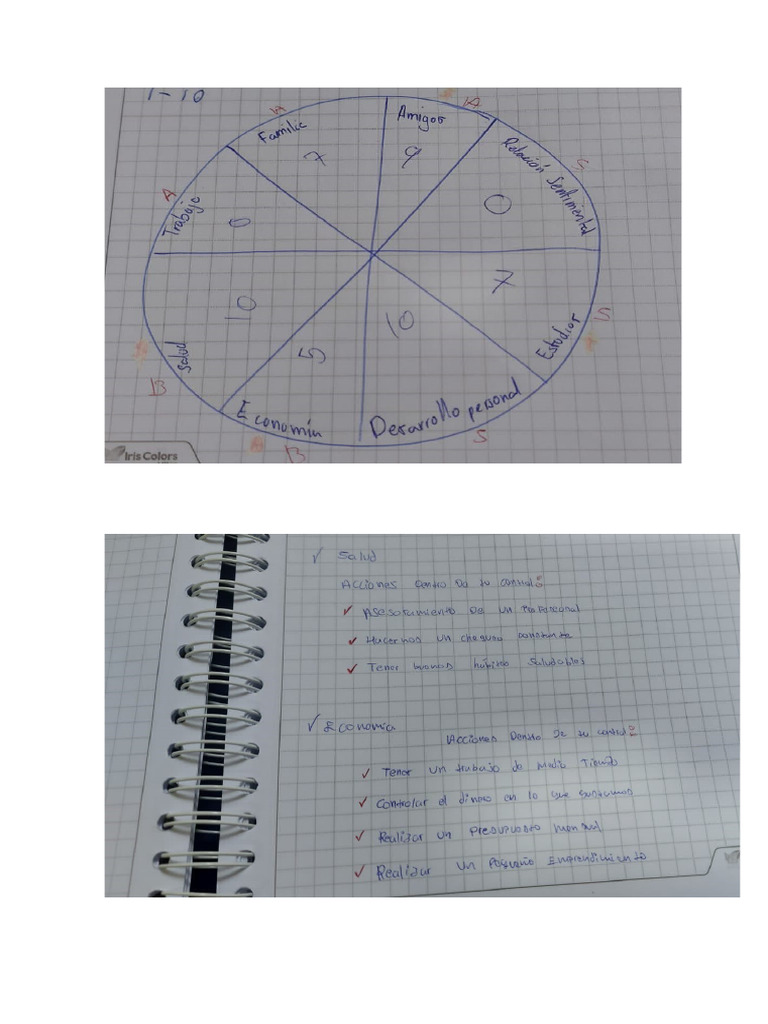 1-10
Familia
7
A
Amigos
9
A
Relación Sentimental
0
S
Trabajo
0
A
Estudios
7
S
Salud
10
B
Economía
5
B
Desarrollo personal
10
S
Iris Colors
✓ Salud
Acciones dentro De tu control:
✓ Asesoramiento De un Profesional
✓ Hacernos un chequeo constante
✓ Tener buenos hábitos saludables
✓ Economía
Acciones Dentro De tu control:
✓ Tener un trabajo de Medio Tiempo
✓ Controlar el dinero en lo que gastamos
✓ Realizar un Presupuesto Mensual
✓ Realizar un Pequeño Emprendimiento